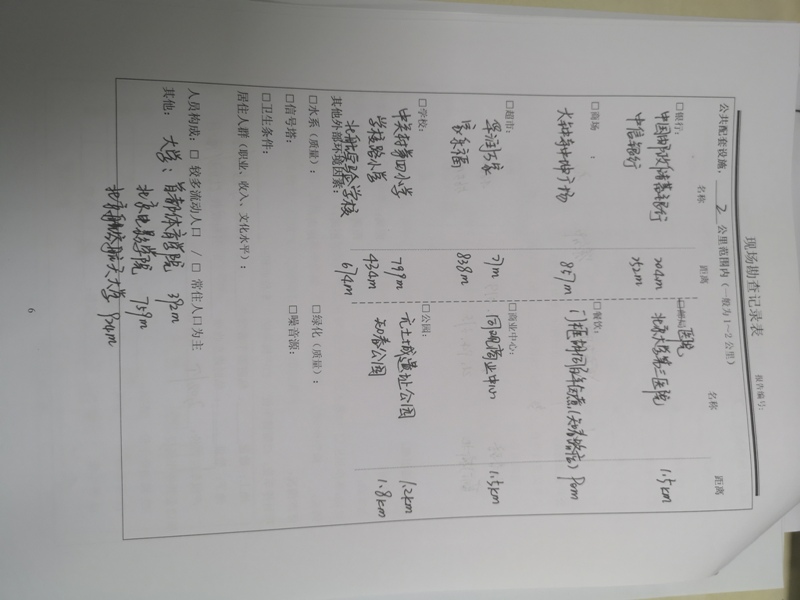 现场勘查记录表
报告编号:
公共配套设施, 2 公里范围内(一般为1~2公里)
名称 距离 名称 距离
□银行: 医院
中国邮政储蓄银行 204m 北京大学第三医院 1.5km
中信银行 252m
□商场: □餐饮:
大钟寺中坤广场 857m 门框胡同百年卤煮(知春路店)
□超市: □商业中心:
华润万家 71m 同观商业中心 1.5km
838m
□学校: □公园:
中关村第四小学 799m 元土城遗址公园 1.2km
学校路小学 434m 知春公园 1.8km
北航实验学校 674m
其他外部环境因素:
□水系(质量): □绿化(质量):
□信号塔: □噪音源:
□卫生条件:
居住人群(职业、收入、文化水平):
人员构成: □ 较多流动人口 / □ 常住人口为主
其他: 大学: 首都体育学院 392m
北京电影学院 759m
北京航空航天大学 924m
6